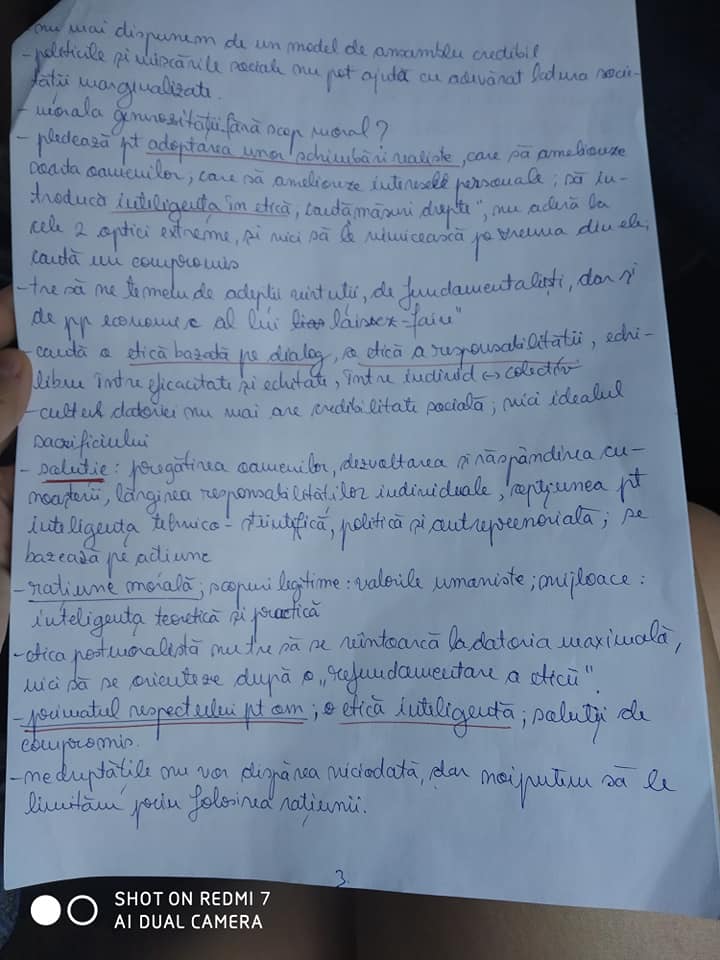 nu mai dispunem de un model de ansamblu credibil
- politicile și mișcările sociale nu pot ajuta cu adevărat latura socie-
tății marginalizate.
- morala generozității fără scop moral?
- pledează pt adoptarea unor schimbări realiste, care să amelioreze
soarta oamenilor, care să amelioreze interesele personale; să in-
troducă inteligența în etică, caută măsuri drepte", nu aderă la
cele 2 optici extreme, și nici să le nimicească pe vreuna din ele,
caută un compromis
- tre să ne temem de adepții virtuții, de fundamentaliști, dar și
de pp economic al lui laissez-faire"
- caută o etică bazată pe dialog, o etică a responsabilității, echi-
libru între eficacitate și echitate, între individ ↔ colectiv
- cultul datoriei nu mai are credibilitate socială; nici idealul
sacrificiului
- soluție: pregătirea oamenilor, dezvoltarea și răspândirea cu-
noașterii, lărgirea responsabilităților individuale, opțiunea pt
inteligența tehnico-științifică, politică și antreprenorială; se
bazează pe acțiune
- rațiune morală; scopuri legitime: valorile umaniste; mijloace:
inteligența teoretică și practică
- etica postmoralistă nu tre să se reîntoarcă la datoria maximală,
nici să se orienteze după o „refundamentare a eticii".
- primatul respectului pt om; o etică inteligentă; soluții de
compromis.
- nedreptățile nu vor dispărea niciodată, dar noi putem să le
limităm prin folosirea rațiunii.
3.
SHOT ON REDMI 7
AI DUAL CAMERA